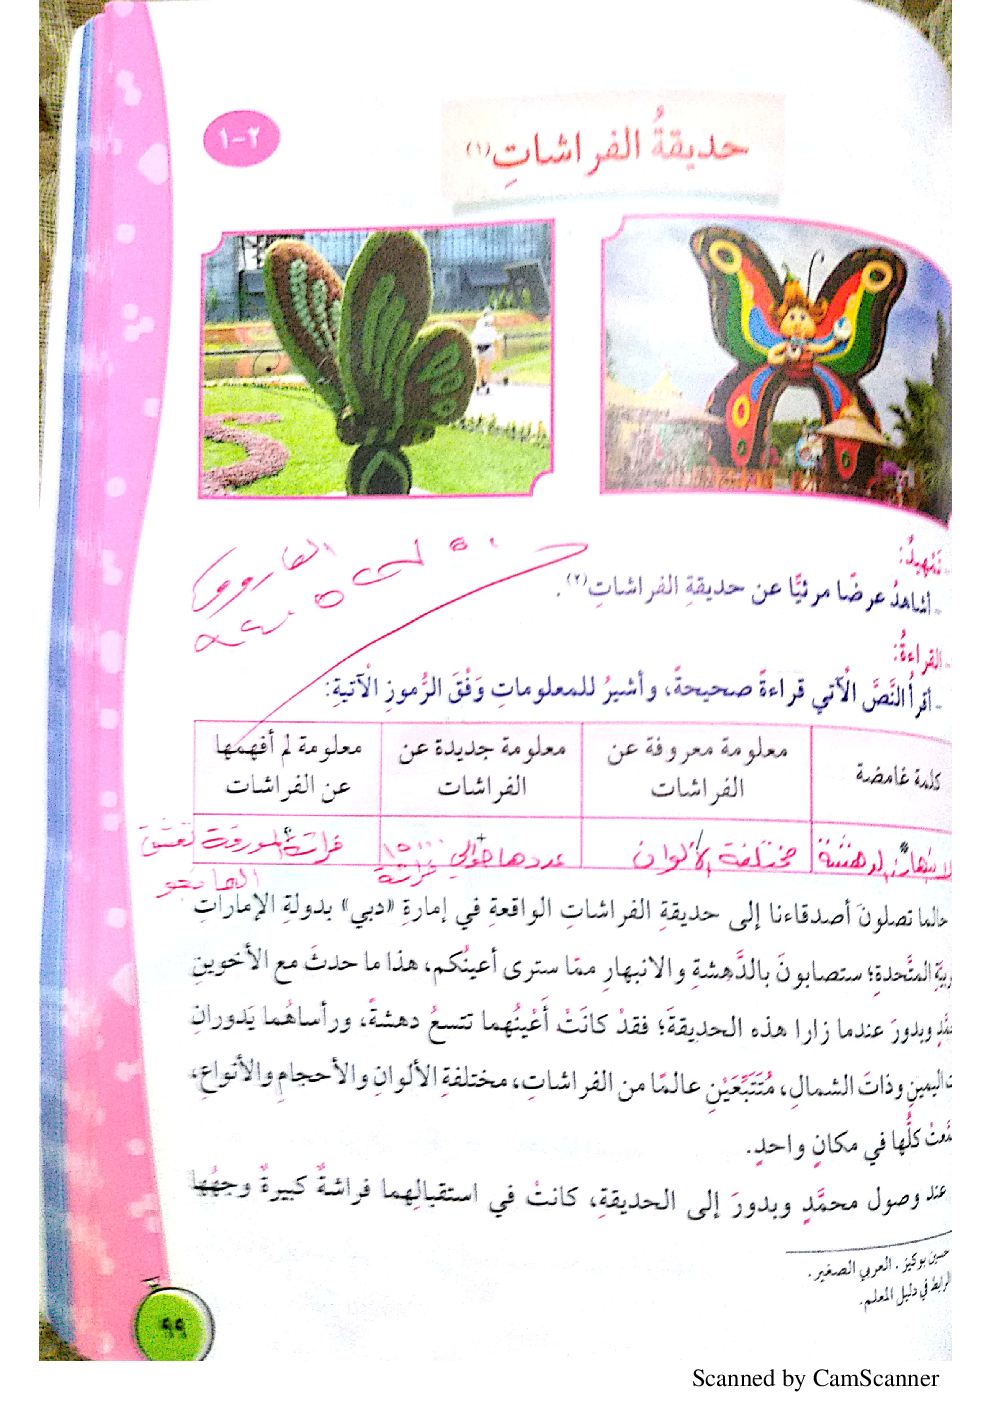 حديقةُ الفراشاتِ (١)
٢-١
تمهيدٌ:
- أشاهدُ عرضًا مرئيًّا عن حديقةِ الفراشاتِ (٢).
القراءةُ:
- أقرأُ النَّصَّ الْآتي قراءةً صحيحةً، وأشيرُ للمعلوماتِ وَفْقَ الرُّموزِ الْآتيةِ:
كلمة غامضة
معلومة معروفة عن الفراشات
معلومة جديدة عن الفراشات
معلومة لم أفهمها عن الفراشات
الدهشة
مختلفة الألوان
عددها حوالي ١٥٠٠٠ فراشة
فراشة المورقة تعشق
حالما تصلونَ أصدقاءنا إلى حديقةِ الفراشاتِ الواقعةِ في إمارةِ «دبي» بدولةِ الإماراتِ
المتَّحدةِ؛ ستصابونَ بالدَّهشةِ والانبهارِ ممّا سترى أعينُكم، هذا ما حدثَ مع الأخوينِ
وبدورَ عندما زارا هذه الحديقةَ؛ فقدْ كانَتْ أَعْينُهما تتسعُ دهشةً، ورأساهُما يَدورانِ
اليمينِ وذاتَ الشمالِ، مُتَتَبِّعَيْنِ عالمًا من الفراشاتِ، مختلفةِ الألوانِ والأحجامِ والأنواعِ،
كلُّها في مكانٍ واحدٍ.
عند وصول محمَّدٍ وبدورَ إلى الحديقةِ، كانتْ في استقبالِهما فراشةٌ كبيرةٌ وجهُها
حسين بوكيز. العربي الصغير.
الرابط في دليل المعلم.
٩٩
Scanned by CamScanner